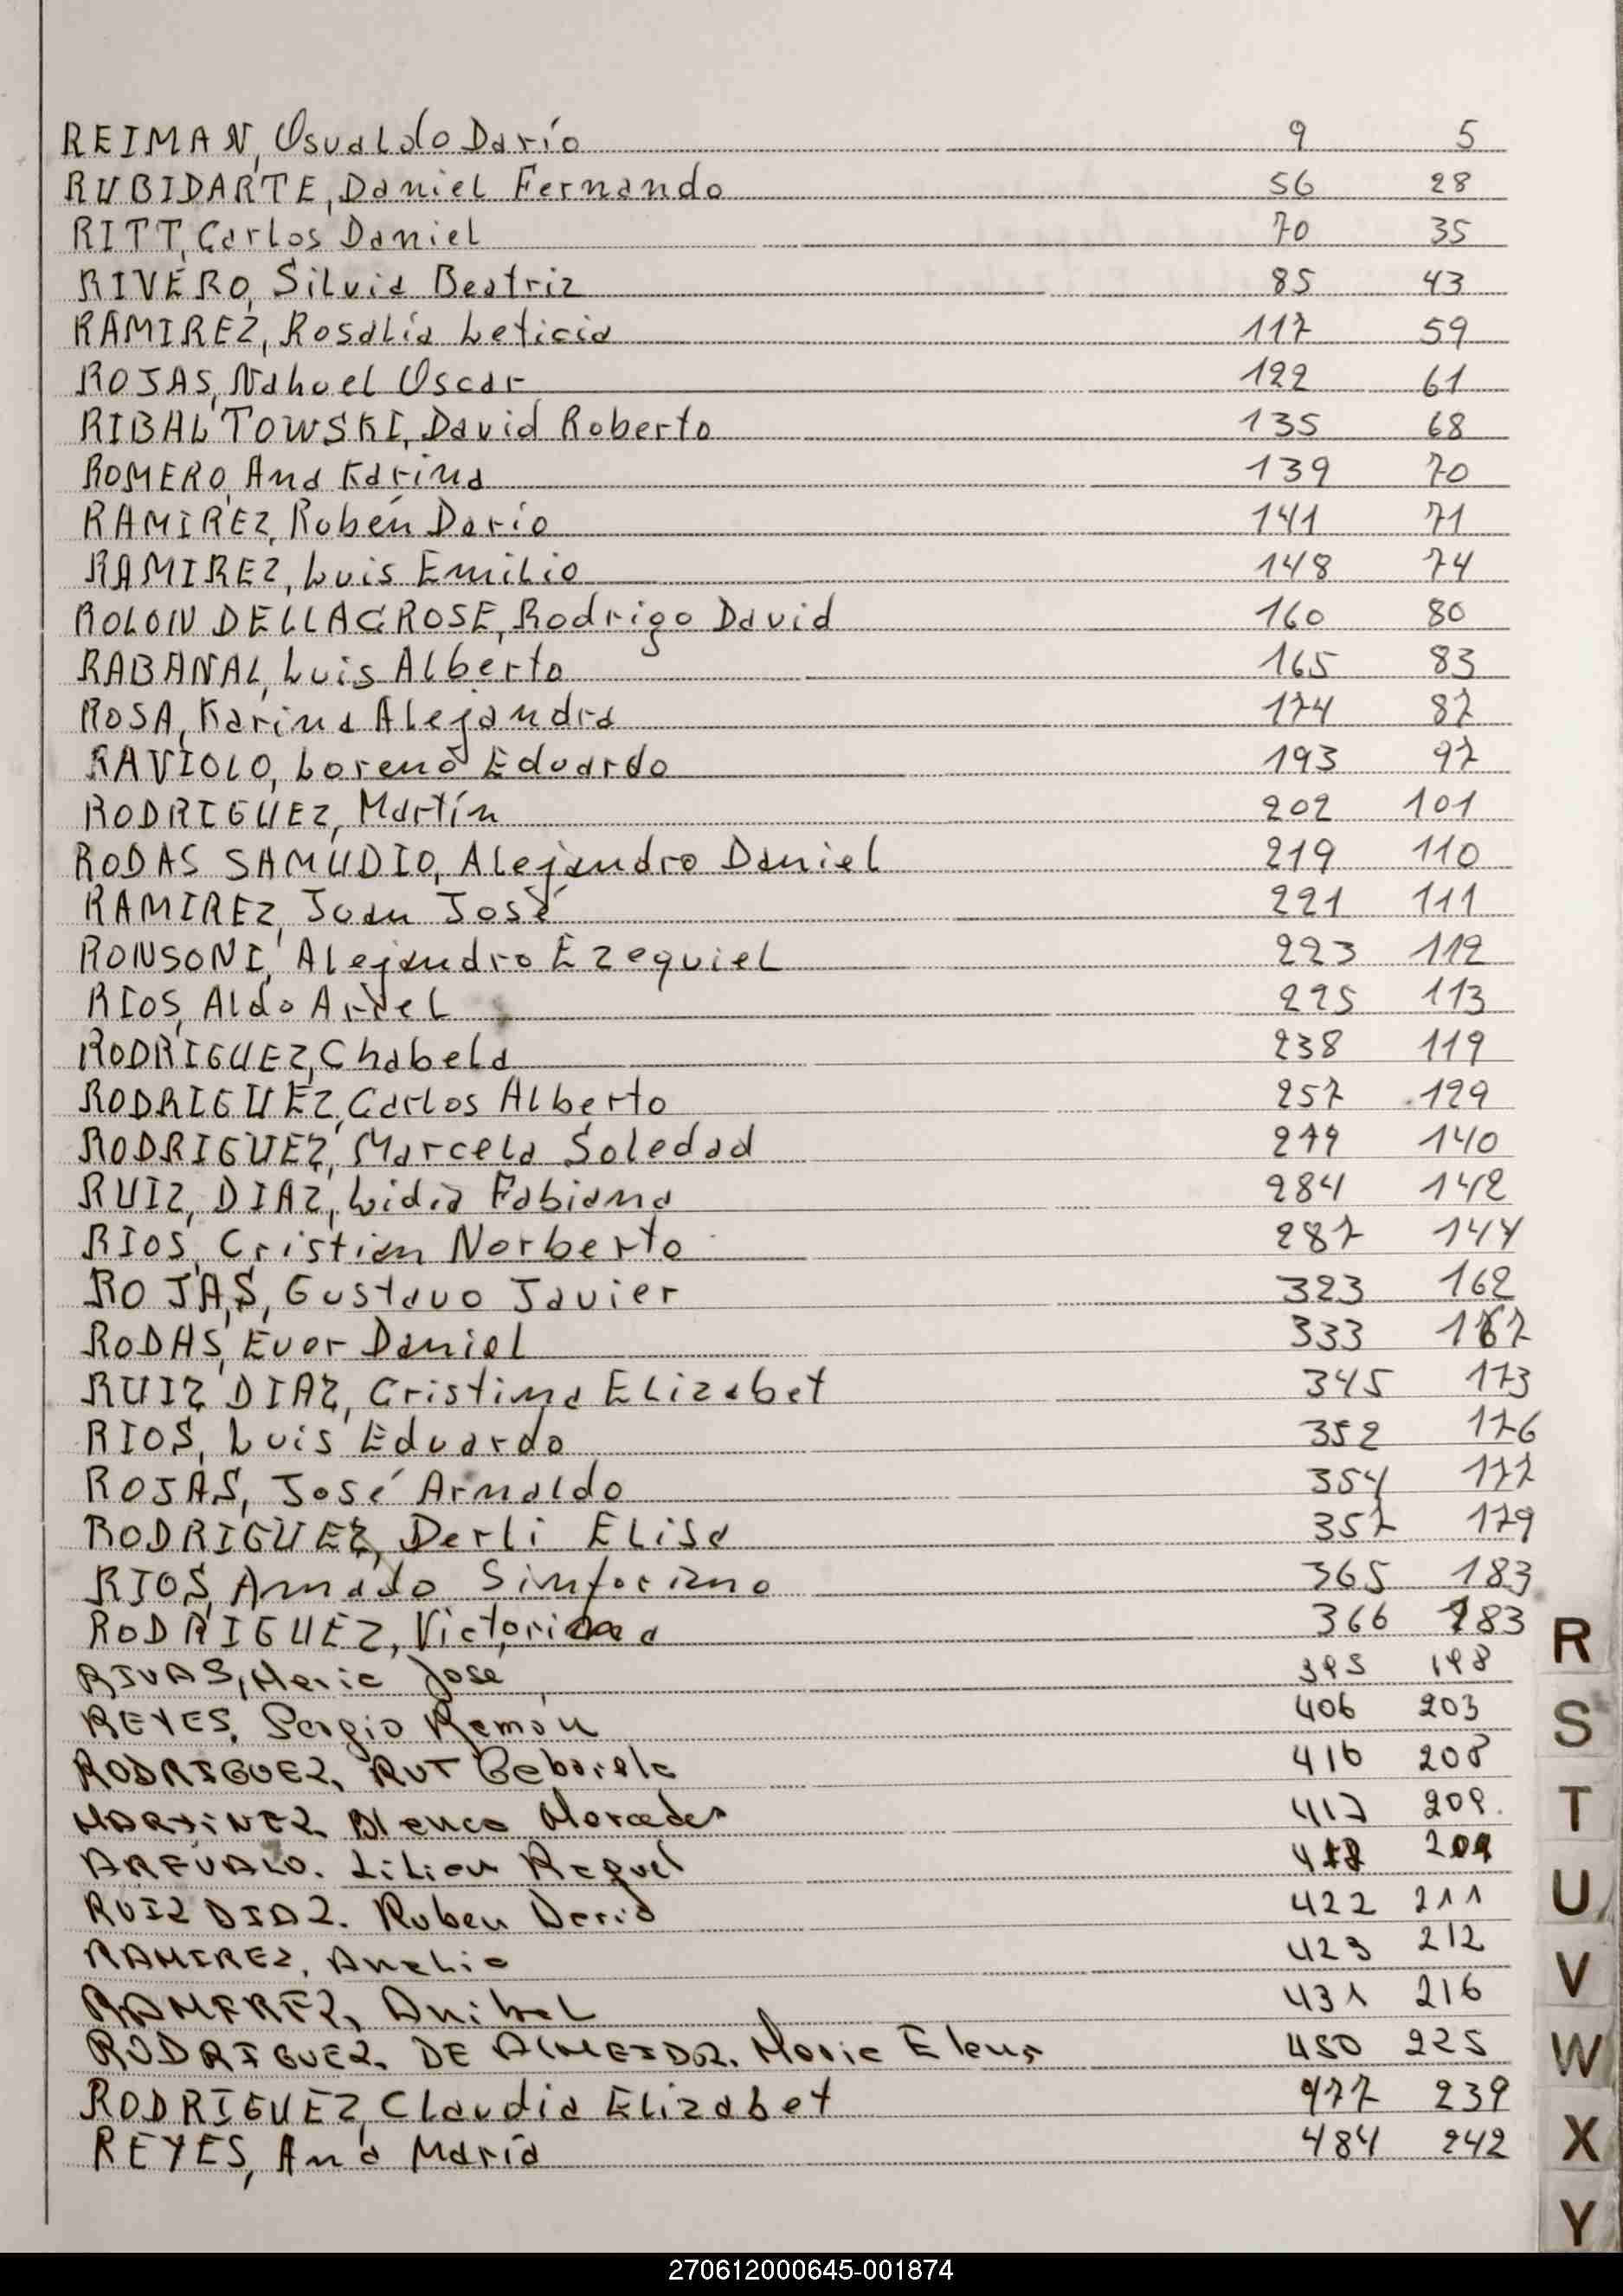 REIMAN, Osvaldo Darío 9 5
RUBIDARTE, Daniel Fernando 56 28
RITT, Carlos Daniel 70 35
RIVERO, Silvia Beatriz 85 43
RAMIREZ, Rosalía Leticia 117 59
ROJAS, Nahuel Oscar 122 61
RIBALTOWSKI, David Roberto 135 68
ROMERO, Ana Karina 139 70
RAMIREZ, Rubén Darío 141 71
RAMIREZ, Luis Emilio 148 74
ROLON DELLACROSE, Rodrigo David 160 80
RABANAL, Luis Alberto 165 83
ROSA, Karina Alejandra 174 87
RAVIOLO, Loreno Eduardo 193 97
RODRIGUEZ, Martín 202 101
RODAS SAMUDIO, Alejandro Daniel 219 110
RAMIREZ, Juan José 221 111
RONSONI, Alejandro Ezequiel 223 112
RIOS, Aldo Ariel 225 113
RODRIGUEZ, Chabela 238 119
RODRIGUEZ, Carlos Alberto 257 129
RODRIGUEZ, Marcela Soledad 279 140
RUIZ, DIAZ, Lidia Fabiana 284 142
RIOS, Cristian Norberto 287 144
ROJAS, Gustavo Javier 323 162
RODAS, Ever Daniel 333 167
RUIZ DIAZ, Cristina Elizabet 345 173
RIOS, Luis Eduardo 352 176
ROJAS, José Arnaldo 354 177
RODRIGUEZ, Derli Elisa 357 179
RIOS, Amado Sinforiano 365 183
RODRIGUEZ, Victoriana 366 183
RIVAS, Maria Jose 395 198
REYES, Sergio Ramón 406 203
RODRIGUEZ, RUT Gabriela 416 208
MARTINEZ, Blanca Mercedes 417 209.
AREVALO. Lilian Raquel 418 209
RUIZ DIAZ. Ruben Dario 422 211
RAMIREZ, Analia 423 212
RAMIREZ, Anibal 431 216
RODRIGUEZ. DE ALMEIDA. Maria Elena 450 225
RODRIGUEZ, Claudia Elizabet 477 239
REYES, Ana María 484 242
R
S
T
U
V
W
X
Y
270612000645-001874